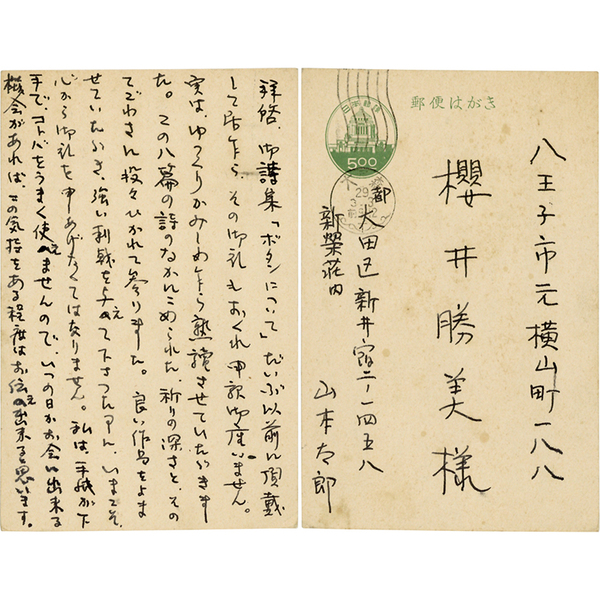 拝啓 御詩集「ボタンについて」だいぶ以前に頂戴
して居乍ら その御礼もおくれ申訳御座いません。
実は、ゆっくりかみしめ乍ら熟読させていただきまし
た。この八篇の詩のなかにこめられた、祈りの深さと、その
てごわさに段々ひかれて参りました。良い作品をよま
せていただき、強い刺戟を与えて下さった
心から御礼を申あげなくてはなりません。私は、手紙が下
手で、コトバをうまく使えませんので、いつの日かお会い出来る
機会があれば、この気持をある程度はお伝え出来ると思います。
郵便はがき
日本郵便
500
八王子市元横山町一八八
櫻井勝美様
都 大田区新井宿二ノ一四五八
新榮荘内
山本太郎